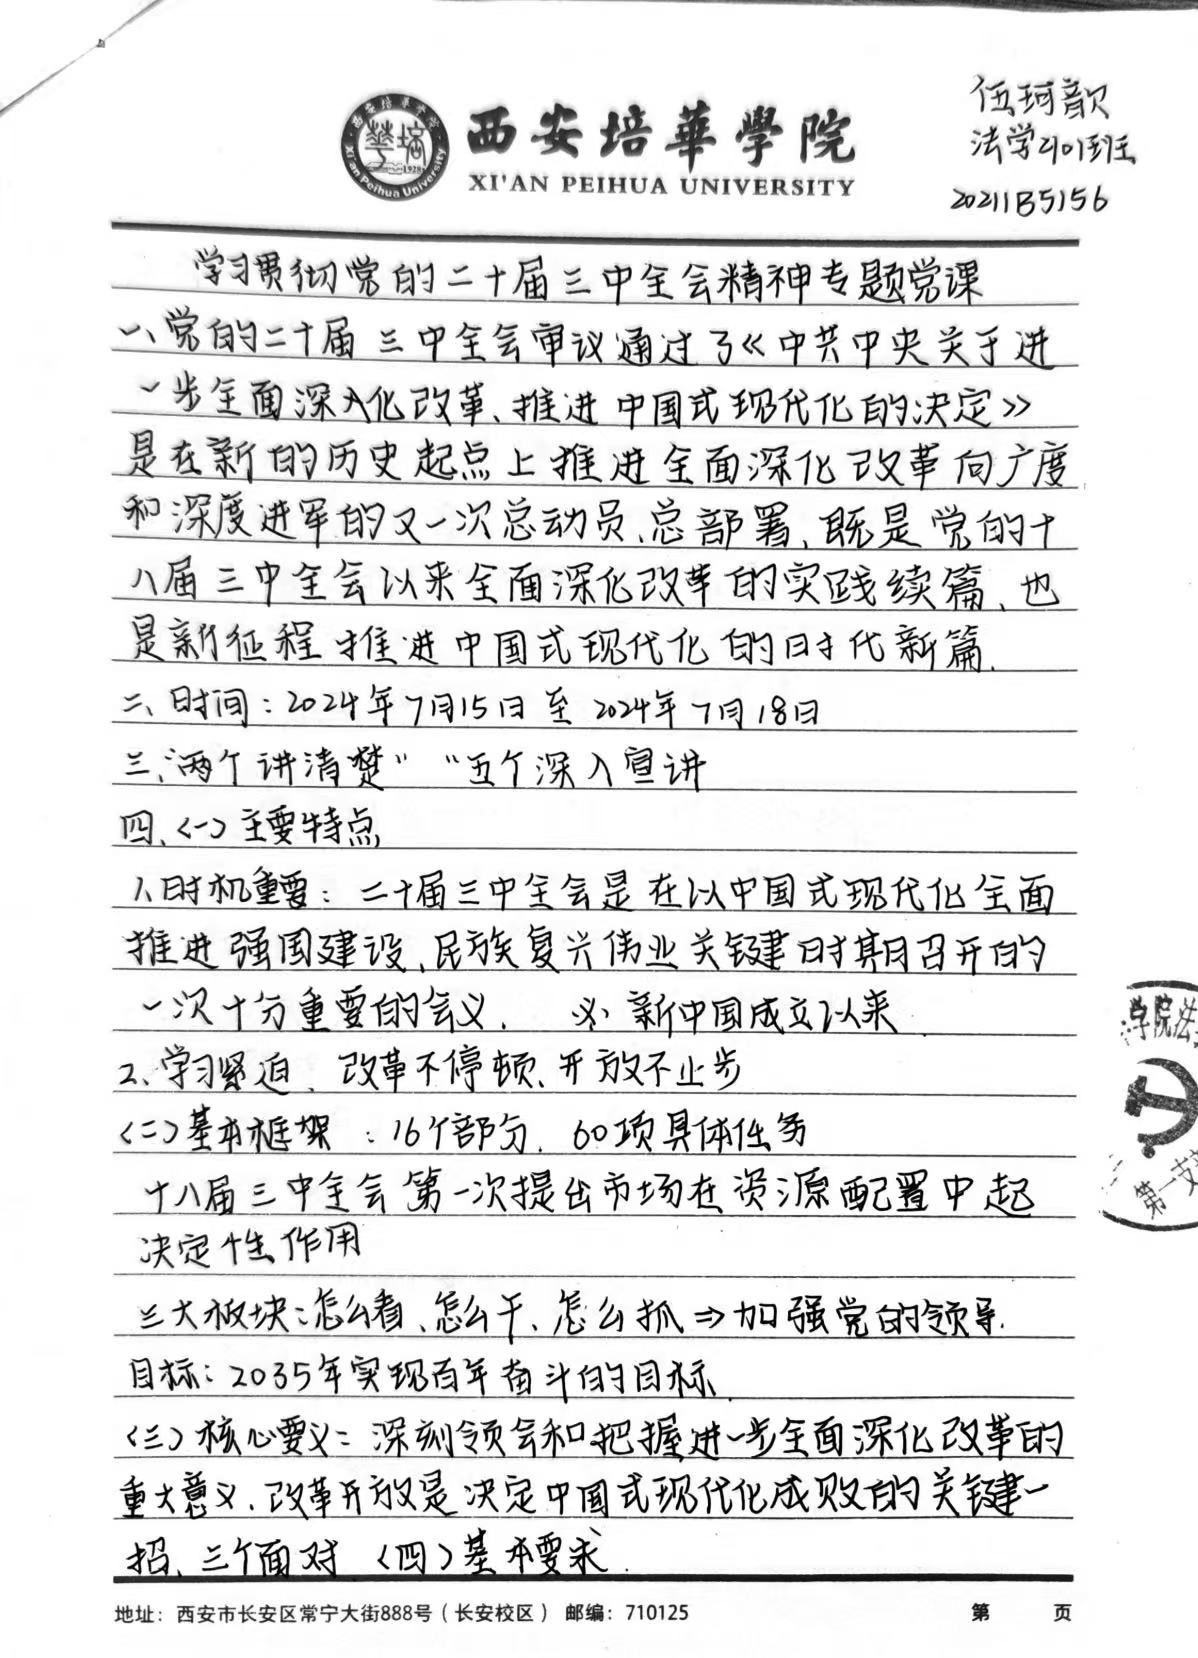 伍珂歆
法学2101班
20211B5156
西安培華學院
XI'AN PEIHUA UNIVERSITY
西安培华学院
華培
1928
Xi'an Peihua University
学习贯彻党的二十届三中全会精神专题党课
一、党的二十届三中全会审议通过了《中共中央关于进
一步全面深入化改革、推进中国式现代化的决定》
是在新的历史起点上推进全面深化改革向广度
和深度进军的又一次总动员、总部署，既是党的十
八届三中全会以来全面深化改革的实践续篇、也
是新征程推进中国式现代化的时代新篇.
二、时间：2024年7月15日至2024年7月18日
三、“两个讲清楚”“五个深入宣讲
四、<一>主要特点
1、时机重要：二十届三中全会是在以中国式现代化全面
推进强国建设、民族复兴伟业关键时期召开的
一次十分重要的会议. 新中国成立以来
2、学习紧迫、改革不停顿、开放不止步
<二>基本框架：16个部分、60项具体任务
十八届三中全会第一次提出市场在资源配置中起
决定性作用
三大板块：怎么看、怎么干、怎么抓⇒加强党的领导.
目标：2035年实现百年奋斗的目标.
<三>核心要义：深刻领会和把握进一步全面深化改革的
重大意义、改革开放是决定中国式现代化成败的关键一
招、三个面对 <四>基本要求.
学院法
第一支
地址：西安市长安区常宁大街888号（长安校区） 邮编：710125 第 页